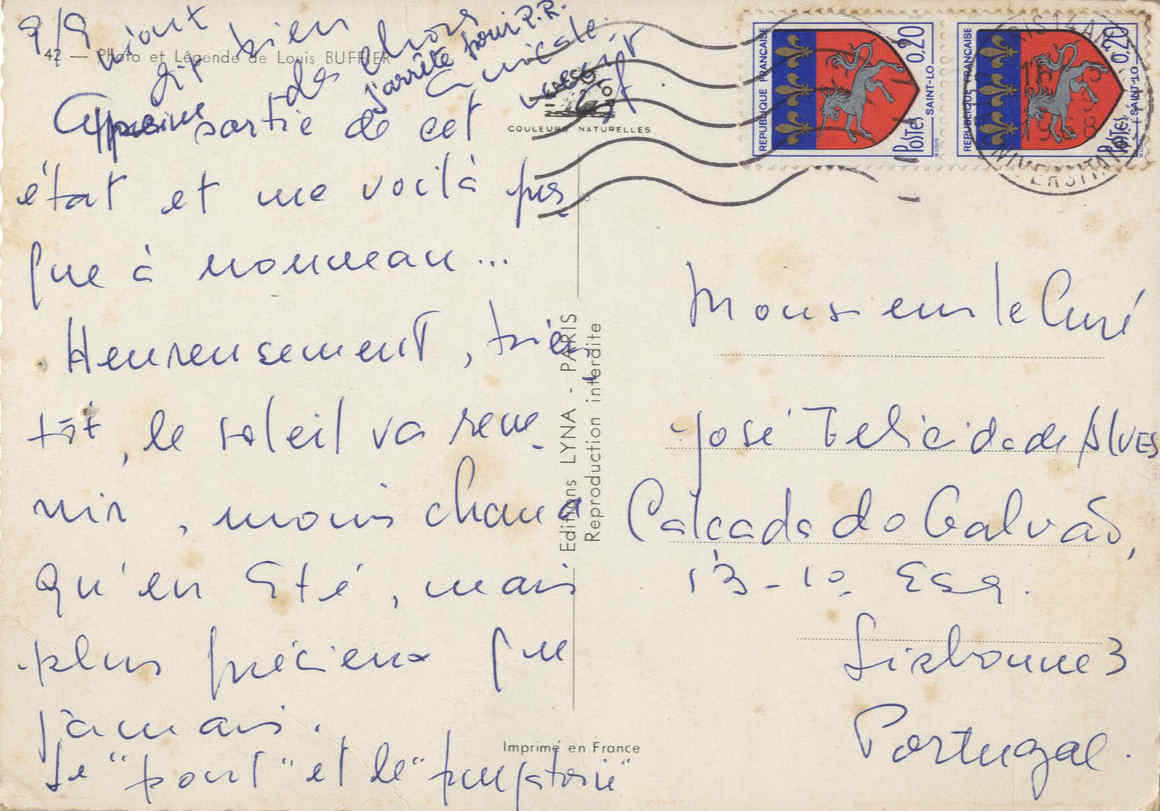 9/9
42 — Photo et Légende de Louis BUFFIER
bien
de choses
j'arrête pour P.R.
amicale.
sortie de cet
état et me voilà pres
que à nouveau...
Heureusement, très
tôt, le soleil va reve
nir, moins chaud
qu'en Eté, mais
plus précieux que
jamais.
Le "pont" et le "purgatoire"
COULEURS NATURELLES
Editions LYNA - PARIS
Reproduction interdite
Imprimé en France
REPUBLIQUE FRANÇAISE
0,20
POSTES
SAINT-LO
REPUBLIQUE FRANÇAISE
0,20
POSTES
SAINT-LO
Monsieur le Curé
José Felicidade Alves
Calçada do Galvão,
13-1o. Esq.
Lisbonne 3
Portugal.